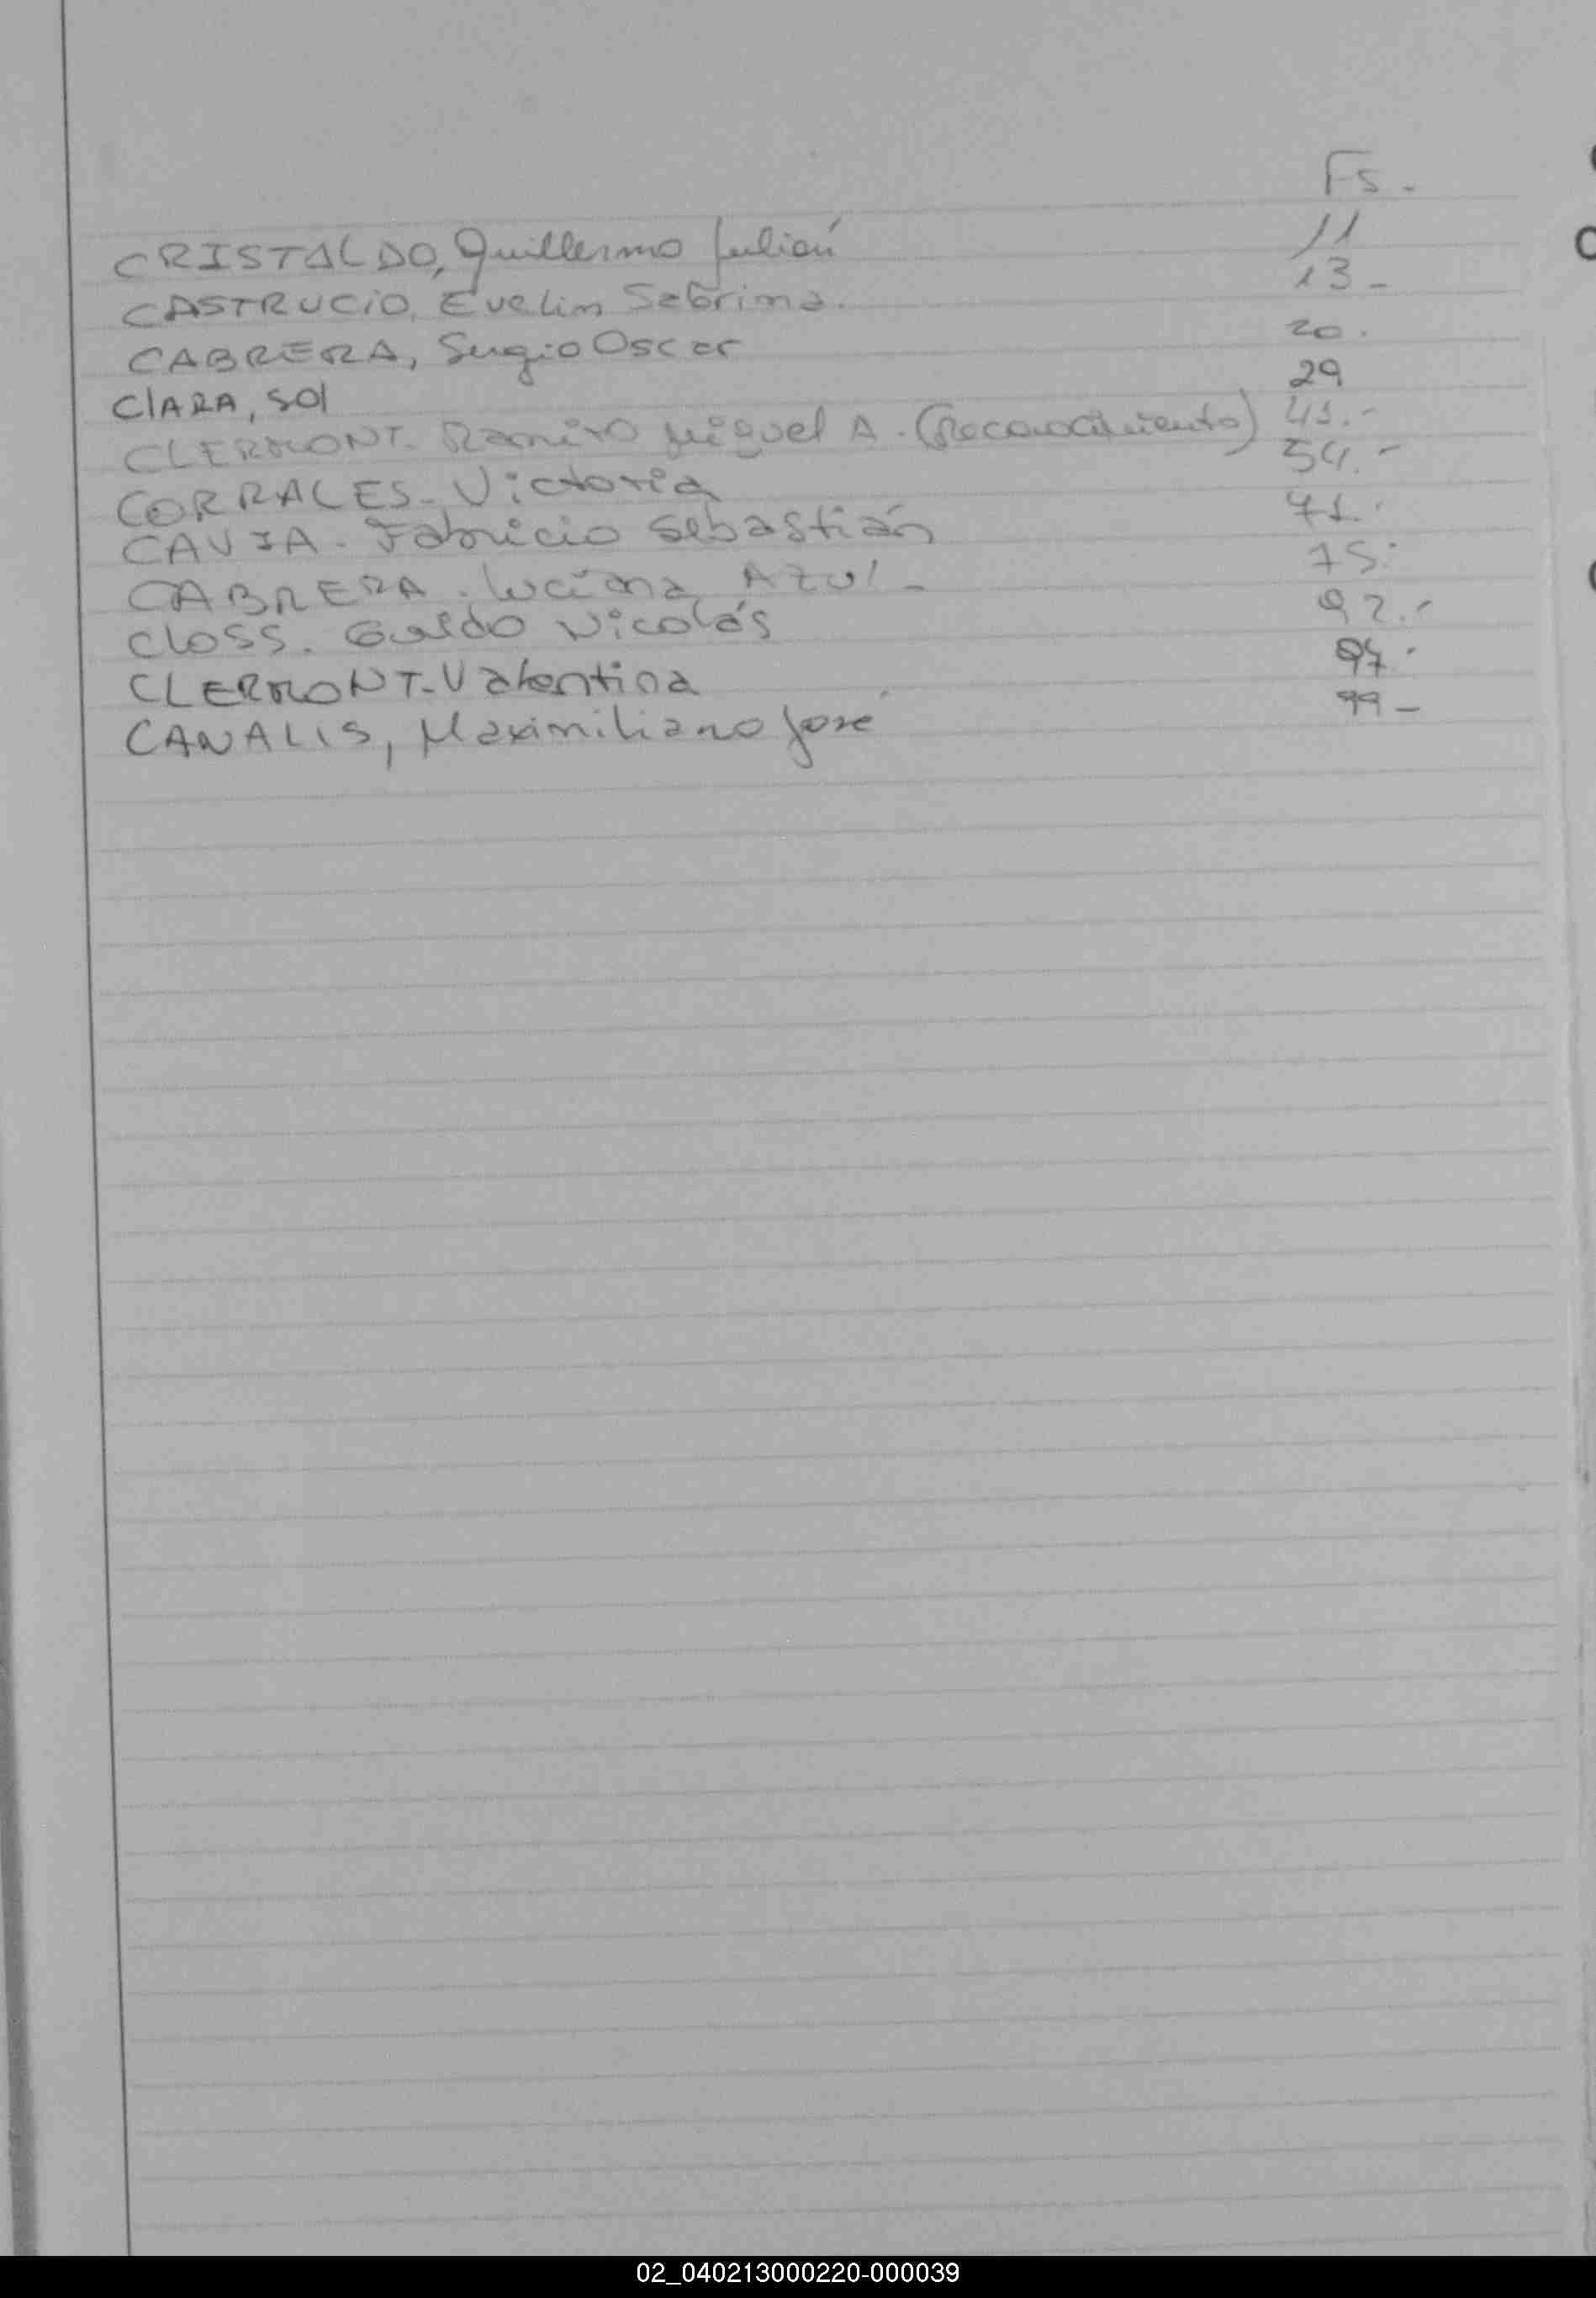 Fs.
CRISTALDO, Guillermo Julián 11
CASTRUCIO, Evelin Sabrina. 13-
CABRERA, Sergio Oscar 20.
ClARA, SOl 29
CLERMONT. Ramiro Miguel A. (Reconocimiento) 41.-
CORRALES- Victoria 54.-
CAVIA- Fabricio Sebastián 71.
CABRERA. Luciana Azul- 75.
Closs. Nicolás 92.-
CLERMONT-Valentina
CANALIS, Maximiliano José 99-
02_040213000220-000039